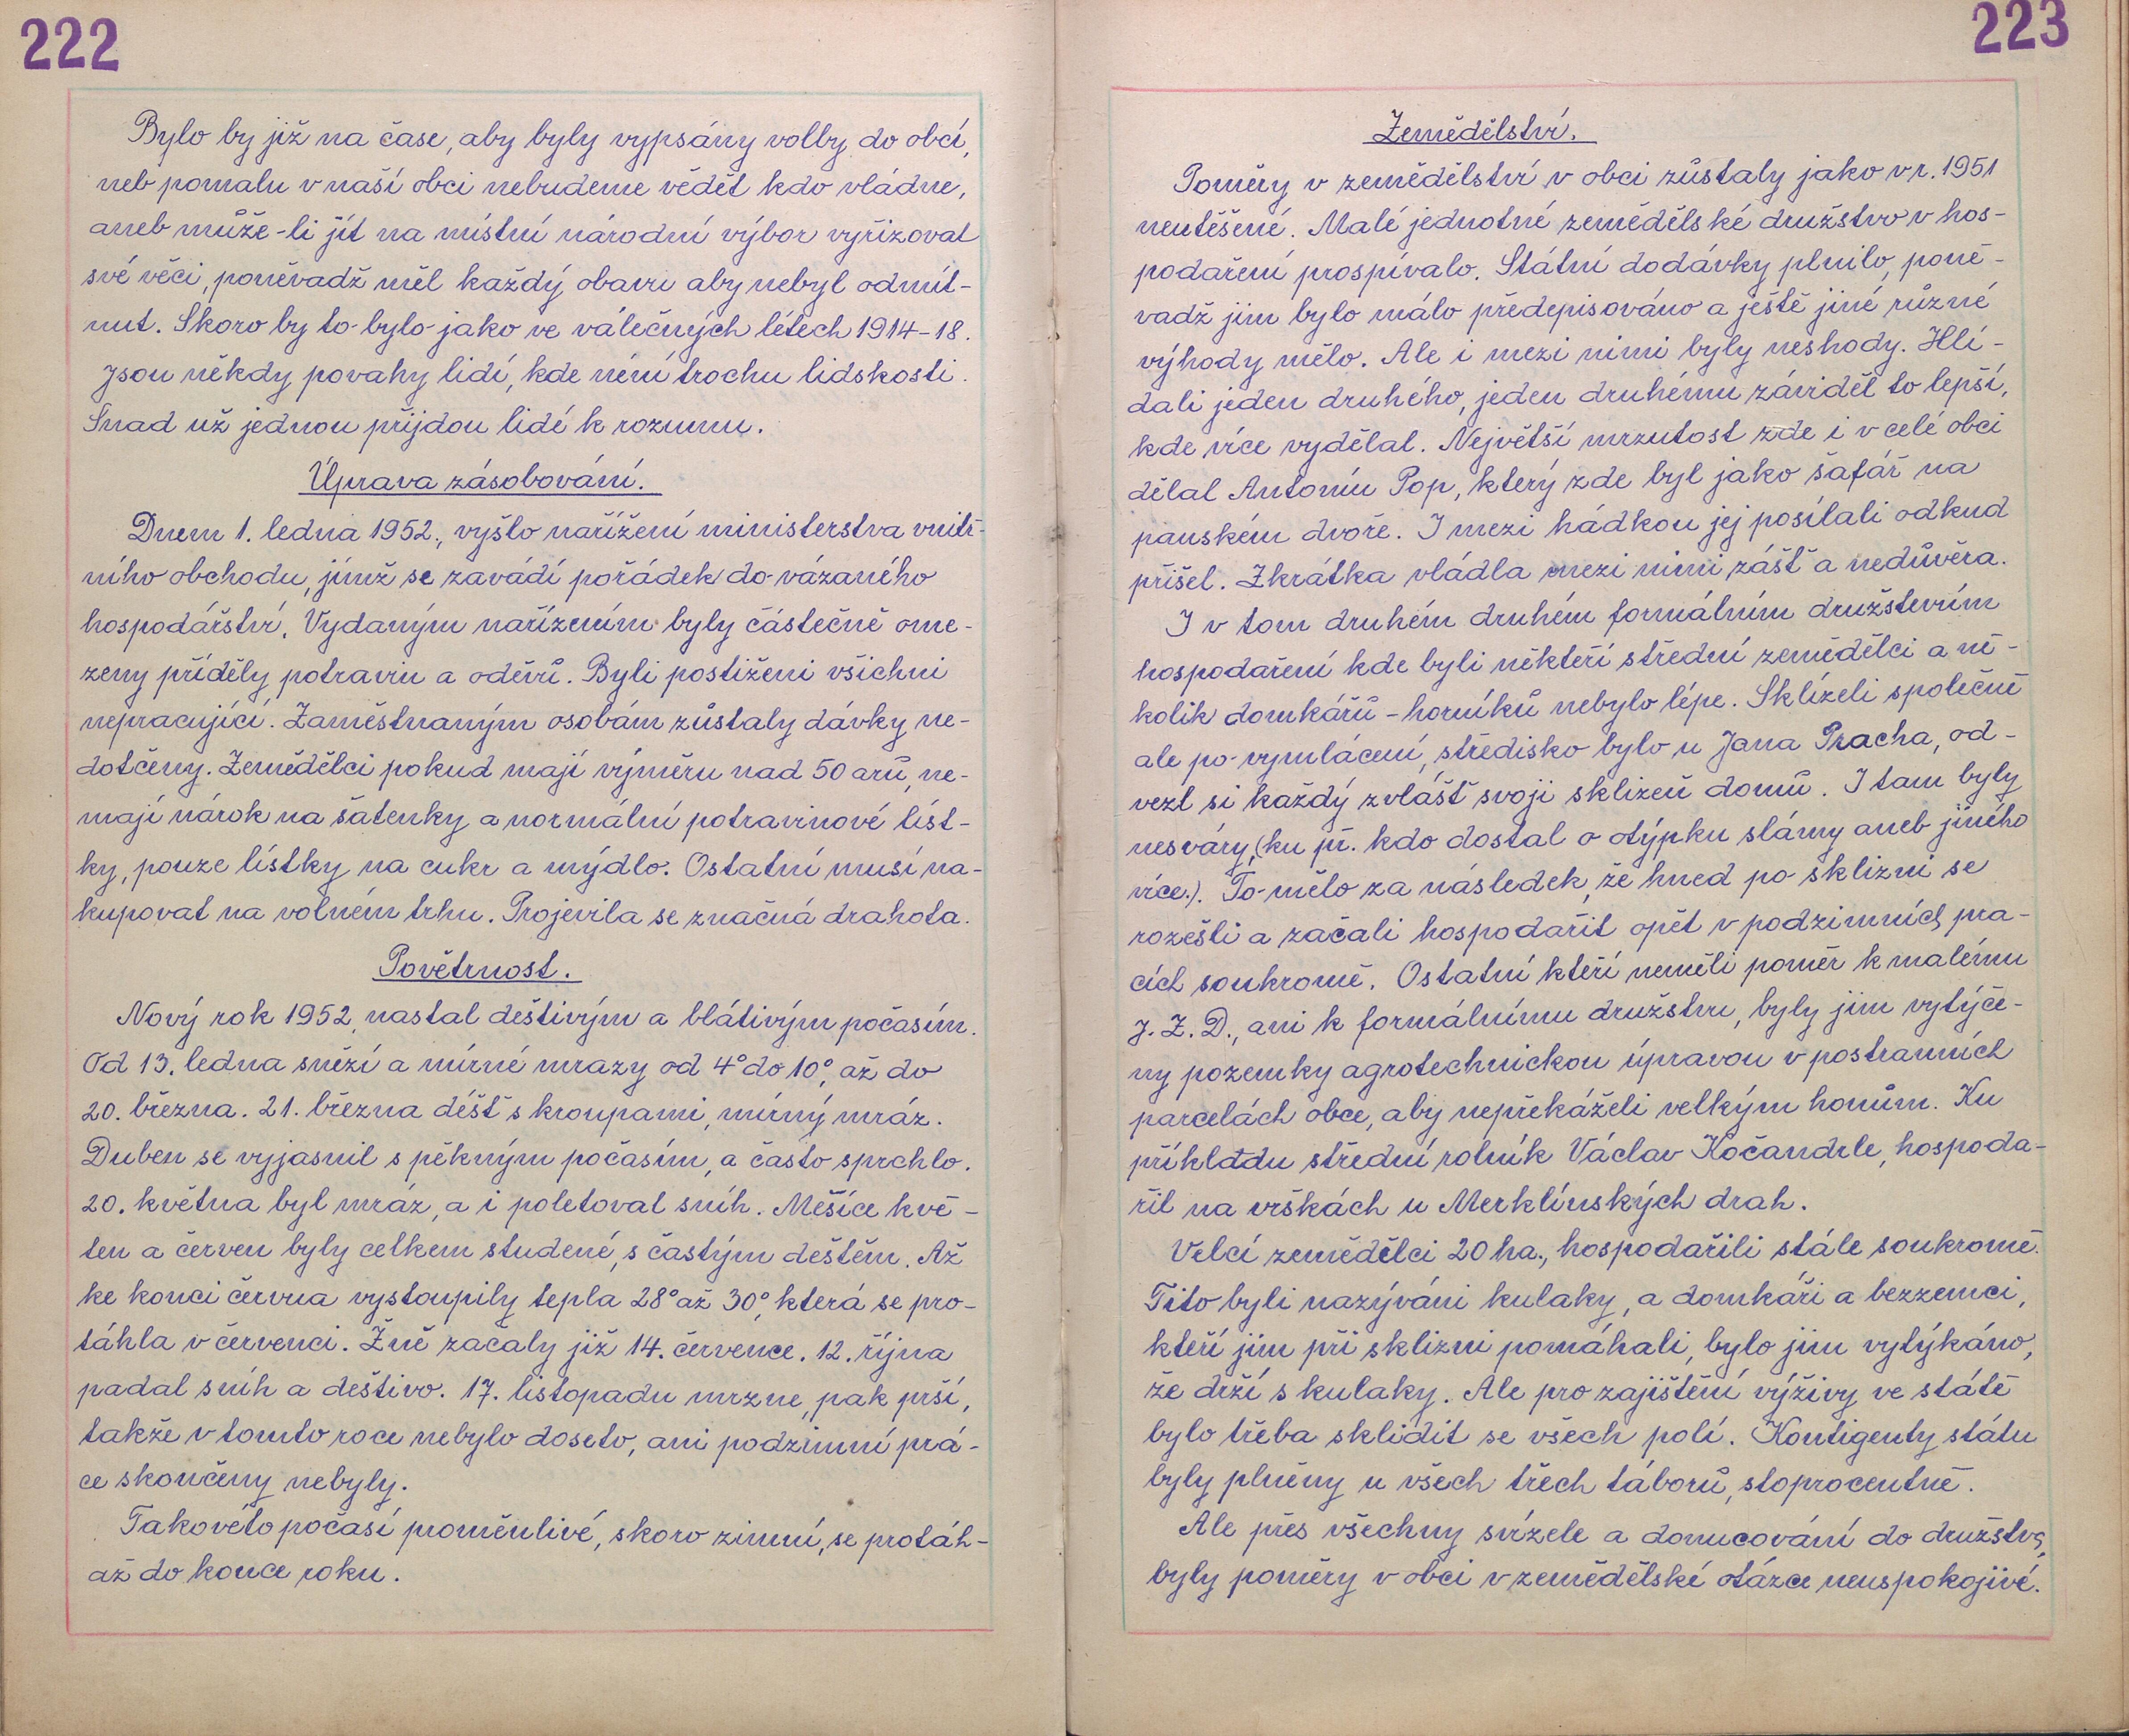 222
Bylo by již na čase, aby byly vypsány volby do obcí,
neb pomalu v naší obci nebudeme vědět kdo vládne,
aneb může-li jít na místní národní výbor vyřizovat
své věci, poněvadž měl každý obavu aby nebyl odmít-
nut. Skoro by to bylo jako ve válečných létech 1914-18.
Jsou někdy povahy lidí, kde není trochu lidskosti.
Snad už jednou přijdou lidé k rozumu.
Úprava zásobování.
Dnem 1. ledna 1952., vyšlo nařížení ministerstva vnitř-
ního obchodu, jímž se zavádí pořádek do vázaného
hospodářství. Vydaným nařízením byly částečně ome-
zeny příděly potravin a oděvů. Byli postiženi všichni
nepracující. Zaměstnaným osobám zůstaly dávky ne-
dotčeny. Zemědělci pokud mají výměru nad 50 arů, ne-
mají nárok na šatenky a normální potravinové líst-
ky, pouze lístky na cukr a mýdlo. Ostatní musí na-
kupovat na volném trhu. Projevila se značná drahota.
Povětrnost.
Nový rok 1952, nastal deštivým a blátivým počasím.
Od 13. ledna sněží a mírné mrazy od 4° do 10°, až do
20. března. 21. března déšť s kroupami, mírný mráz.
Duben se vyjasnil s pěkným počasím, a často sprchlo.
20. května byl mráz, a i poletoval sníh. Měšíce kvě-
ten a červen byly celkem studené, s častým deštěm. Až
ke konci června vystoupily tepla 28° až 30°, která se pro-
táhla v červenci. Žně začaly již 14. července. 12. října
padal sníh a deštivo. 17. listopadu mrzne, pak prší,
takže v tomto roce nebylo doseto, ani podzimní prá-
ce skončeny nebyly.
Takovéto počasí proměnlivé, skoro zimní, se protáh-
až do konce roku.
223
Zemědělství.
Poměry v zemědělství v obci zůstaly jako v r. 1951
neutěšené. Malé jednotné zemědělské družstvo v hos-
podaření prospívalo. Státní dodávky plnilo, poně-
vadž jim bylo málo předepisováno a ještě jiné různé
výhody mělo. Ale i mezi nimi byly neshody. Hlí-
dali jeden druhého, jeden druhému záviděl to lepší,
kde více vydělal. Největší mrzutost zde i v celé obci
dělal Antonín Pop, který zde byl jako šafář na
panském dvoře. I mezi hádkou jej posílali odkud
přišel. Zkrátka vládla mezi nimi zášť a nedůvěra.
I v tom druhém druhém formálním družstevním
hospodaření kde byli někteří střední zemědělci a ně-
kolik domkářů - horníků nebylo lépe. Sklízeli společně
ale po vymlácení, středisko bylo u Jana Pracha, od-
vezl si každý zvlášť svoji sklizeň domů. I tam byly
nesváry, (ku př. kdo dostal o otýpku slámy aneb jiného
více.). To mělo za následek, že hned po sklizni se
rozešli a začali hospodařit opět v podzimních pra-
cích soukromě. Ostatní kteří neměli poměr k malému
J. Z. D., ani k formálnímu družstvu, byly jim vytýče-
ny pozemky agrotechnickou úpravou v postranních
parcelách obce, aby nepřekáželi velkým honům. Ku
příkladu střední rolník Václav Kočandrle, hospoda-
řil na vrškách u Merklínských drah.
Velcí zemědělci 20 ha., hospodařili stále soukromě.
Tito byli nazýváni kulaky, a domkáři a bezzemci,
kteří jim při sklizni pomáhali, bylo jim vytýkáno,
že drží s kulaky. Ale pro zajištění výživy ve státě
bylo třeba sklidit se všech polí. Kontigenty státu
byly plněny u všech třech táborů, stoprocentně.
Ale přes všechny svízele a donucování do družstva,
byly poměry v obci v zemědělské otázce neuspokojivé.